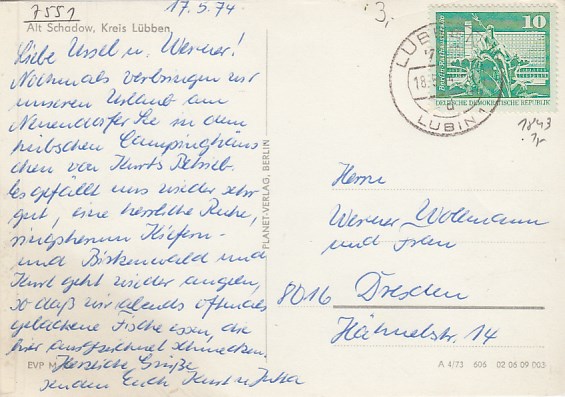 7551
17.5.74
3,-
Alt Schadow, Kreis Lübben
Liebe Ursel u. Werner!
Nochmals verbringen wir
unseren Urlaub am
Neuendorfer See in dem
hübschen Campinghäus
chen von Kurts Betrieb.
Es gefällt uns wieder sehr
gut, eine herrliche Ruhe,
ringsherum Kiefern-
und Birkenwald und
Kurt geht wieder angeln,
so daß wir abends oftmals
gebackene Fische essen, die
hier ausgezeichnet schmecken.
Herzliche Grüße
senden Euch Kurt u. Jutta
EVP M
PLANET-VERLAG, BERLIN
LÜBBEN
18.5.
LUBIN
10
DEUTSCHE DEMOKRATISCHE REPUBLIK
1843
Herrn
Werner Wollmann
und Frau
8016 Dresden
Hähnelstr. 14
A 4/73 606 02 06 09 003